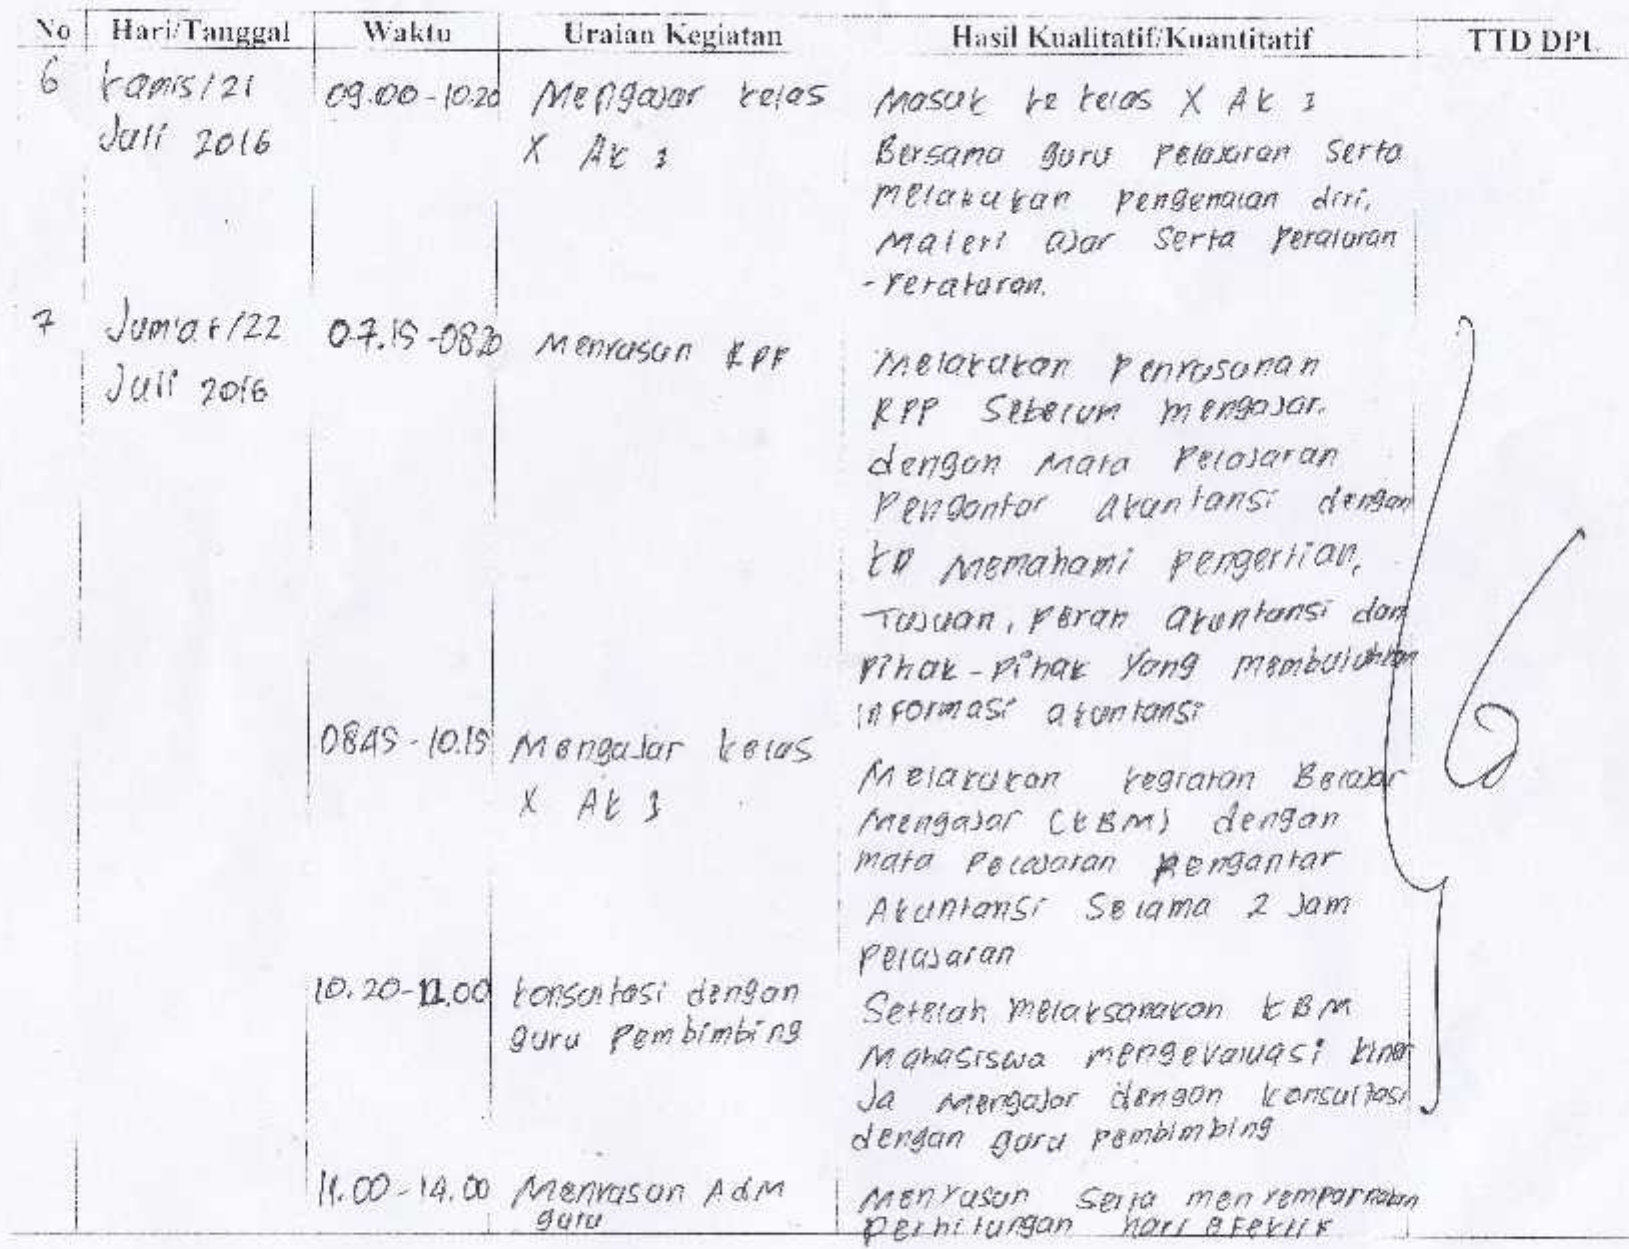 No Hari/Tanggal Waktu Uraian Kegiatan Hasil Kualitatif/Kuantitatif TTD DPL
6 Kamis/21 09.00-10.20 Mengajar kelas Masuk ke kelas X Ak 3
Juli 2016 X Ak 3 Bersama guru pelajaran serta
melakukan pengenalan diri,
Materi ajar serta peraturan
-peraturan.
7 Jum'at/22 07.15-08.20 Menyusun RPP Melakukan penyusunan
Juli 2016 RPP Sebelum mengajar.
dengan Mata Pelajaran
Pengantar akuntansi dengan
KD Memahami pengertian,
Tujuan, peran akuntansi dan
pihak-pihak yang membutuhkan
informasi akuntansi
08.45-10.15 Mengajar kelas Melakukan kegiatan Belajar
X Ak 3 Mengajar (KBM) dengan
mata Pelajaran Pengantar
Akuntansi Selama 2 Jam
pelajaran
10.20-11.00 Konsultasi dengan Setelah melaksanakan KBM
guru Pembimbing Mahasiswa mengevaluasi kiner
Ja Mengajar dengan konsultasi
dengan guru pembimbing
11.00-14.00 Menyusun Adm Menyusun Serta menyempurnakan
guru perhitungan hari efektif